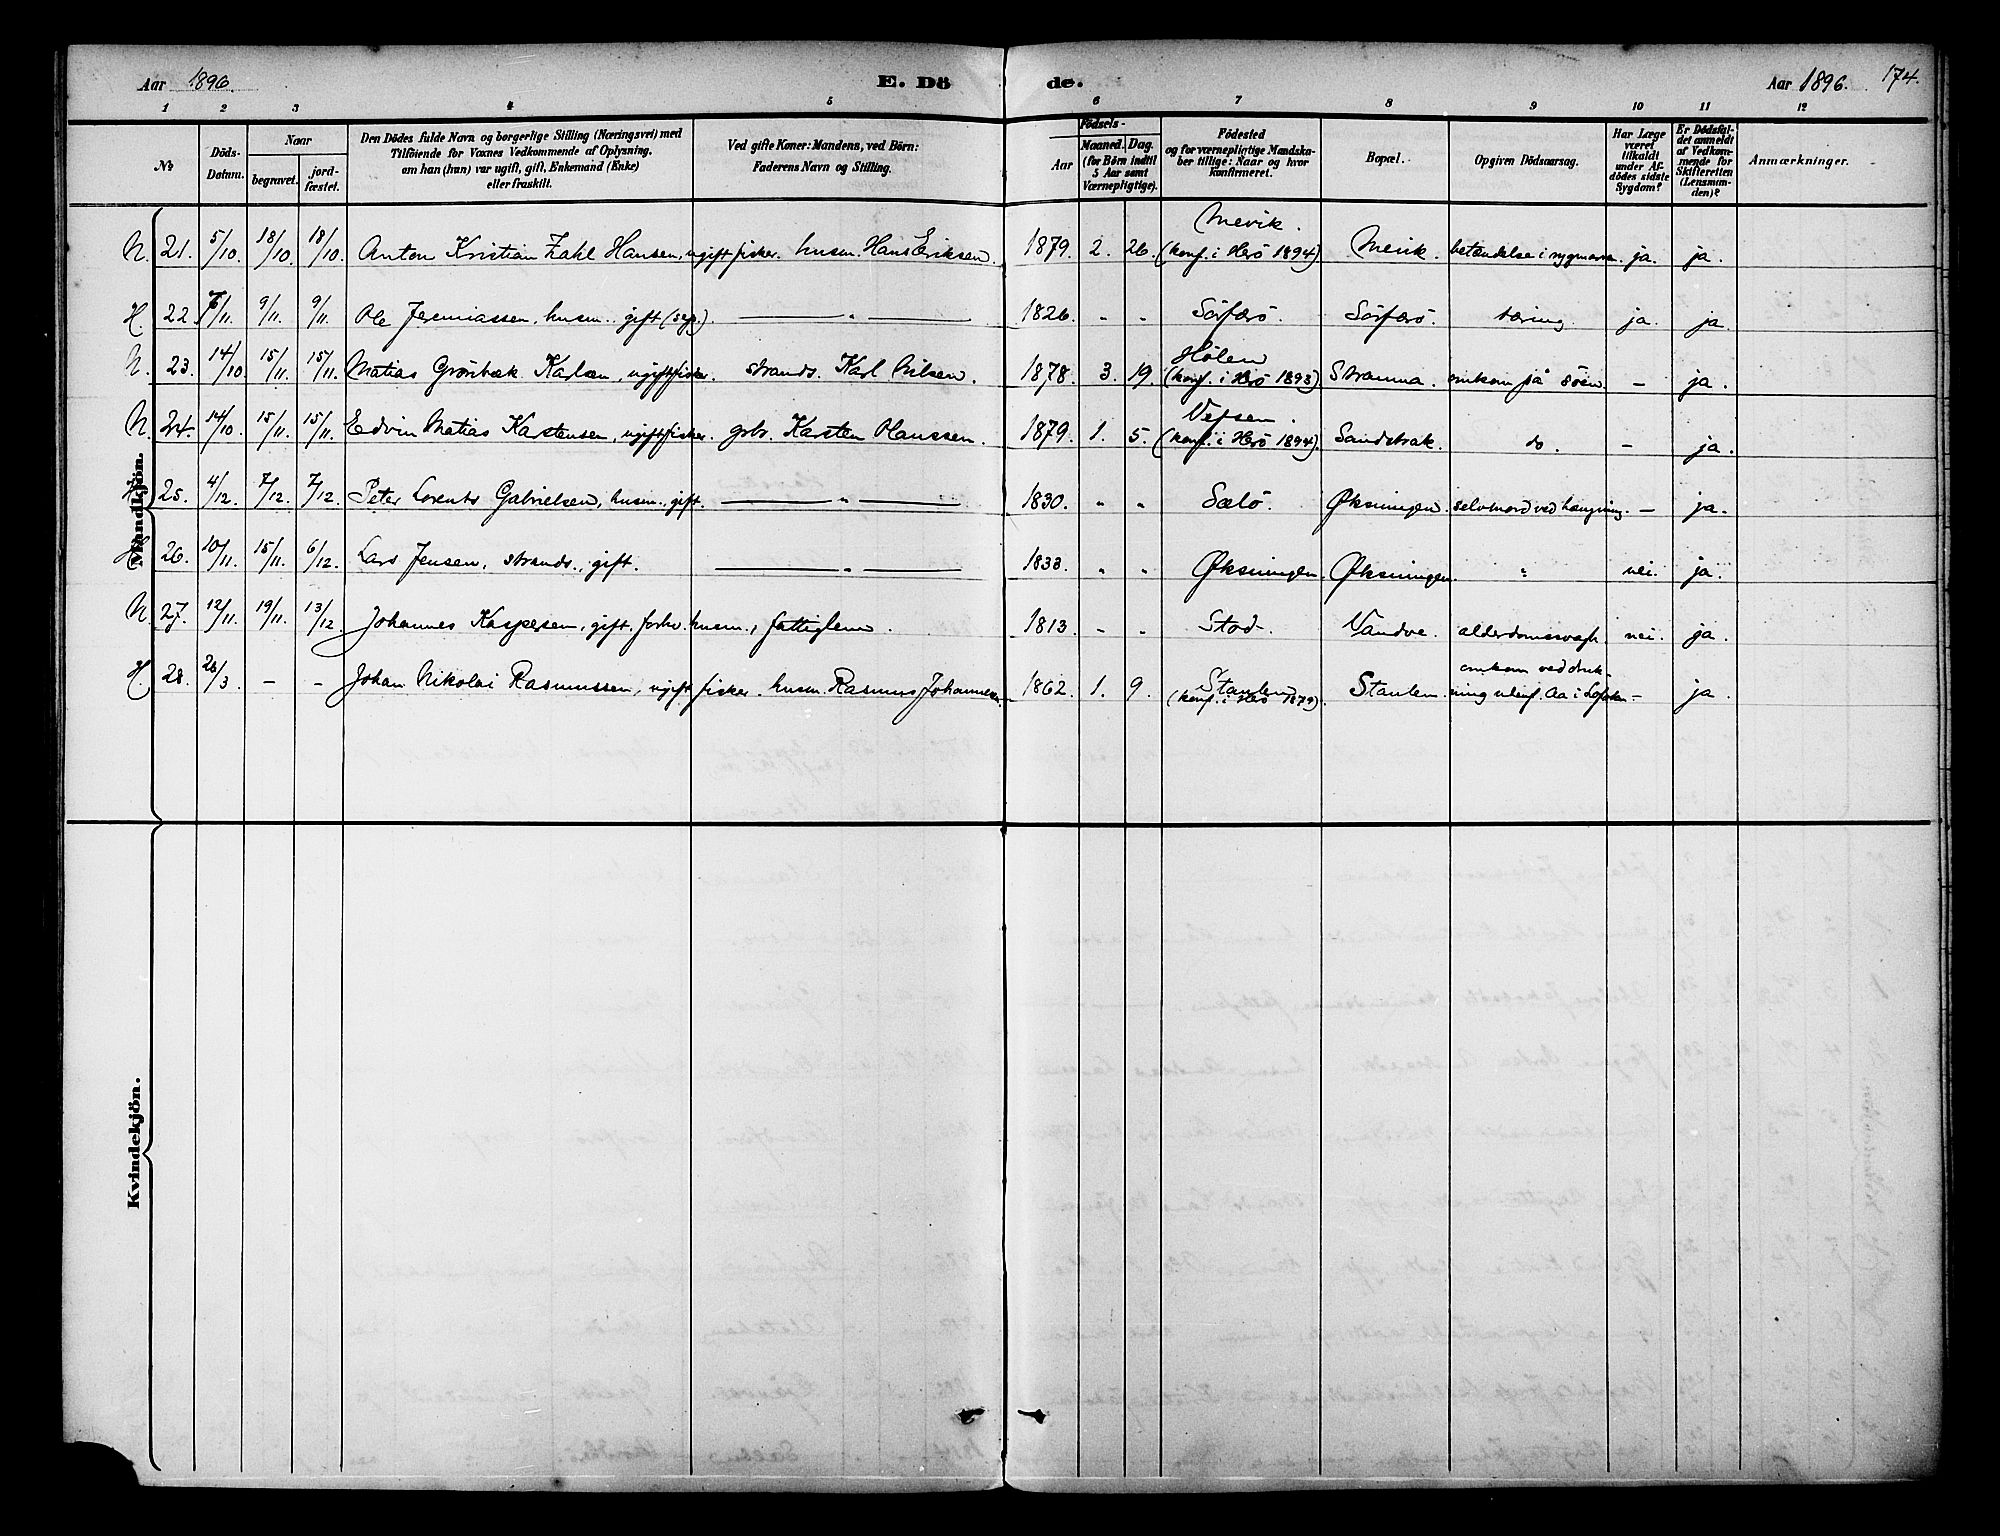 Aar 1896. E. Dö de. Aar 1896. 174.
1 2 3 4 5 6 7 8 9 10 11 12
№
Döds-Datum.
Naar
begravet.
jord-fæstet.
Den Dödes fulde Navn og borgerlige Stilling (Næringsvei) med
Tilföiende for Voxnes Vedkommende af Oplysning,
om han (hun) var ugift, gift, Enkemand (Enke)
eller fraskilt.
Ved gifte Koner: Mandens, ved Börn:
Faderens Navn og Stilling.
Födsels-
Aar
Maaned. Dag.
(for Börn indtil
5 Aar samt
Værnepligtige).
Födested
og for værnepligtige Mandska-
ber tillige: Naar og hvor
konfirmeret.
Bopæl.
Opgiven Dödsaarsag.
Har Læge
været
tilkaldt
under Af-
dödes sidste
Sygdom?
Er Dödsfal-
det anmeldt
af Vedkom-
mende for
Skifteretten
(Lensman-
den)?
Anmærkninger.
Mandkjön.
N. 21. 5/10 18/10 18/10 Anton Kristian Zahl Hansen, ugift fisker. husm. Hans Eriksen. 1879. 2. 26. Mevik. (konf. i Herö 1894) Mevik. betændelse i rygmarven. ja. ja.
H. 22. 6/11. 9/11. 9/11. Ole Jeremiassen, husm. gift (sep.) — „ — 1826. „ „ Sörferö. Sörferö. tæring. ja. ja
N. 23. 14/10 15/11. 15/11. Matias Grönbæk Karlsen, ugift fisker. strands. Karl Nilsen. 1878. 3. 19. Hölen (konf. i Herö 1893) Stramma. omkom på söen – ja.
N. 24. 14/10 15/11. 15/11. Edvin Matias Karstensen, ugift fisker. gbr. Karsten Hanssen. 1879. 1. 5. Vefsen. (konf. i Herö 1894). Sandstrak. do. – ja.
H. 25. 4/12. 7/12. 7/12. Peter Lorents Gabrielsen, husm., gift. — „ — 1830. „ „ Sælö. Øksningen. selvmord ved hængning. – ja.
H. 26. 10/11. 15/11. 6/12. Lars Jensen, strands., gift. — „ — 1833. „ „ Øksningen. Øksningen. „ nei. ja.
N. 27. 12/11. 19/11. 13/12. Johannes Kaspersen, gift, forhv. husm., fattiglem. 1813. „ „ Stod. Vandve. alderdomssvagh. nei. ja.
H. 28. 28/3. – – Johan Nikolai Rasmussen, ugift fisker. husm. Rasmus Johannesen. 1862. 1. 9. Staulen (konf. i Herö 1879). Staulen. omkom ved druk-
ning udenf. Aa i Lofoten – ja
Kvindekjön.